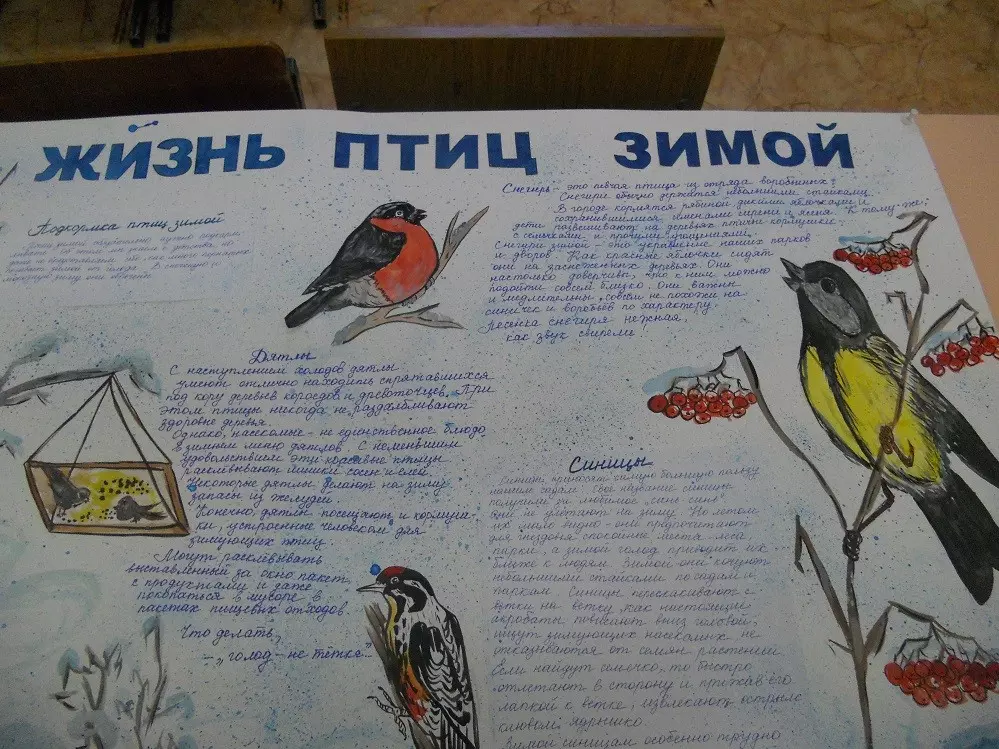 ЖИЗНЬ ПТИЦ ЗИМОЙ
Подкормка птиц зимой
Снегирь - это певчая птица из отряда воробьиных?
Снегири обычно держатся небольшими стайками
В городе кормятся рябиной дикими яблочками и
сохранившимися семенами сирени и ясеня. К тому-же,
дети развешивают на деревьях птичьи кормушки
с семечками и прочими
Снегири зимой - это украшение наших парков
и дворов. Как красные яблочки сидят
они на заснеженных деревьях. Они
настолько доверчивы, что к ним можно
подойти совсем близко. Они важны
и медлительны, совсем не похожи на
синичек и воробьёв по характеру.
Песенка снегиря нежная,
как звук свирели!
Дятлы
С наступлением холодов дятлы
умеют отлично находить спрятавшихся
под кору деревьев короедов и древоточцев. При
этом птицы никогда не раздалбливают
здоровые деревья.
Однако, насекомые - не единственное блюдо
в зимнем меню дятлов. С неменьшим
удовольствием эти красивые птицы
расклёвывают шишки сосен и елей.
Некоторые дятлы делают на зиму
запасы из желудей.
Конечно, дятлы посещают и кормуш-
ки, устроенные человеком для
зимующих птиц.
Могут расклёвывать
выставленный за окно пакет
с продуктами и даже
покопаться в мусоре в
пакетах пищевых отходов.
Что делать,
- "голод - не тётка"..
Синицы
Синицы приносят сильно большую пользу
нашим садам. Своё название синицы
получили
они и улетают на зиму. Но летом
их мало видно - они предпочитают
для гнездовья спокойные места - леса
парки, а зимой голод приводит их
ближе к людям. Зимой они кочуют
небольшими стайками по садам и
паркам. Синицы перескакивают с
ветки на ветку, как настоящие
акробаты повисают вниз головой,
ищут зимующих насекомых, не
отказываются от семян растений
Если найдут семечко, то быстро
отлетают в сторону и прижав его
лапкой к ветке, извлекают острым
клювом ядрышко.
Зимой синицам особенно трудно